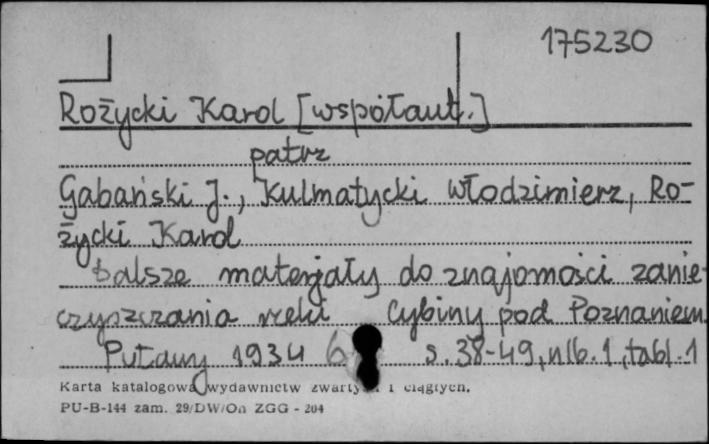 175230
Rożycki Karol [współaut.]
patrz
Gabański J., Kulmatycki Włodzimierz, Ro-
życki Karol
Dalsze materjały do znajomości zanie-
czyszczania rzeki Cybiny pod Poznaniem.
Puławy 1934 s. 38-49, nlb. 1, tabl. 1
Karta katalogowa wydawnictw zwartych i ciągłych.
PU-B-144 zam. 29/DW/On ZGG - 204